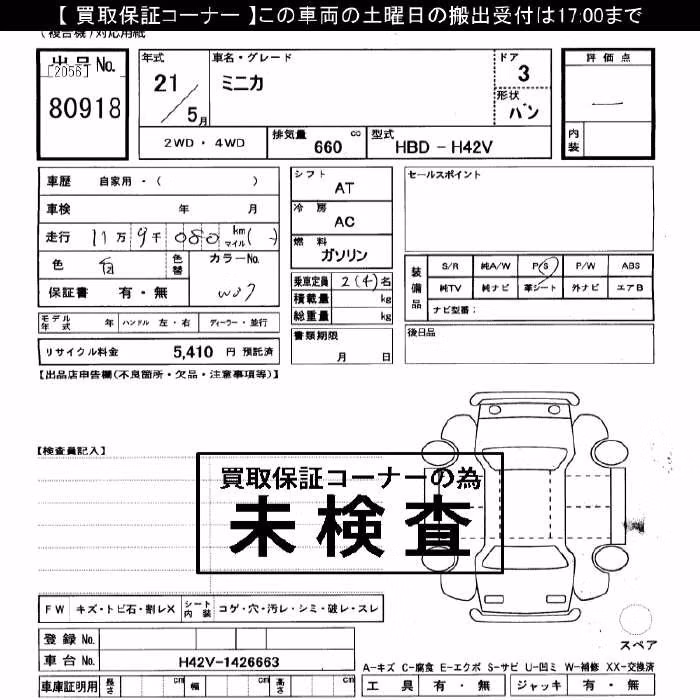 【 買取保証コーナー 】この車両の土曜日の搬出受付は17:00まで
(複合機)対応用紙
出品No.
[2056]
80918
年式
21
5月
車名・グレード
ミニカ
ドア
3
形状
バン
評価点
内装
2WD・4WD
排気量
660
cc
型式
HBD - H42V
車歴 自家用・( )
車検 年 月
走行 11万 9千 080 km マイル( )
色 白
色替
カラーNo.
W07
保証書 有・無
シフト
AT
冷房
AC
燃料
ガソリン
乗車定員 2(4)名
積載量 kg
総重量 kg
書類期限
月 日
セールスポイント
装備品
S/R 純A/W P/S P/W ABS
純TV 純ナビ 革シート 外ナビ エアB
ナビ型番:
後日品
モデル年式 年 ハンドル 左・右 ディーラー・並行
リサイクル料金 5,410 円 預託済
【出品店申告欄(不良箇所・欠品・注意事項等)】
【検査員記入】
買取保証コーナーの為
未検査
FW キズ・トビ石・割レX シート内装 コゲ・穴・汚レ・シミ・破レ・スレ
登録 No.
車台 No. H42V-1426663
車庫証明用 長さ cm 幅 cm 高さ cm
スペア
A-キズ C-腐食 E-エクボ S-サビ U-凹ミ W-補修 XX-交換済
工具 有・無 ジャッキ 有・無